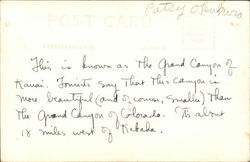 POST CARD
Patsy
This is known as the Grand Canyon of
Kauai. Tourists say that this canyon is
more beautiful (and of course, smaller) than
the Grand Canyon of Colorado. Its about
18 miles west of Kekaha.